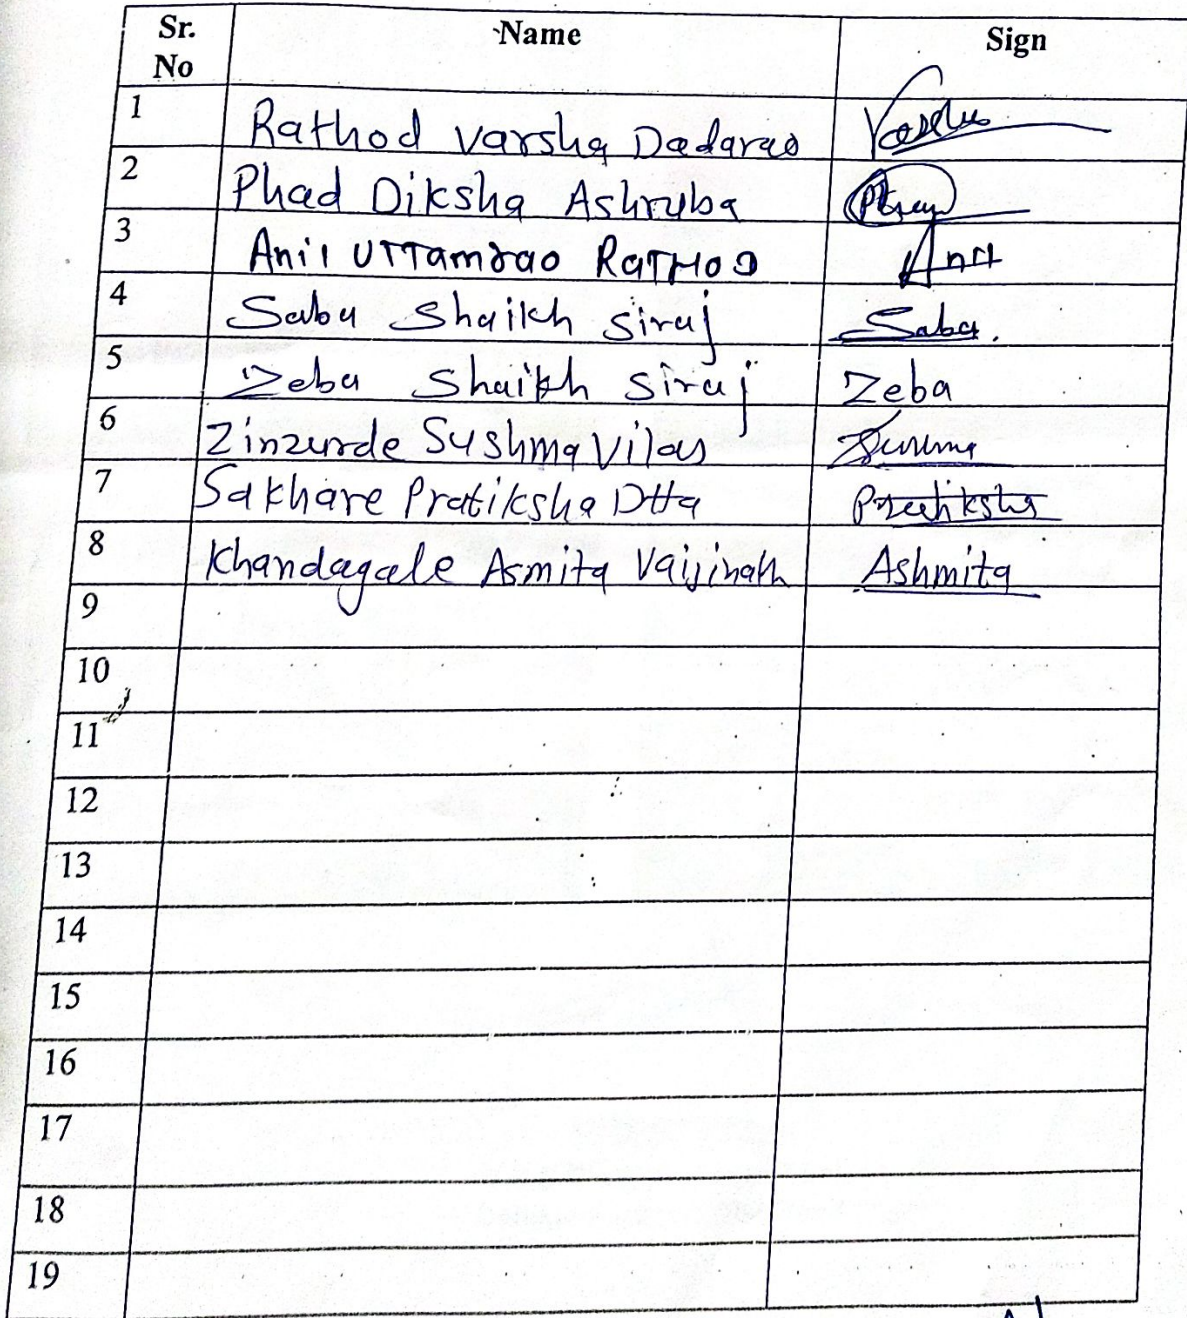 Sr. No Name Sign
1 Rathod Varsha Dadarao Varsha
2 Phad Diksha Ashruba
3 Anil UTTamrao RATHOD Anil
4 Saba Shaikh Siraj Saba.
5 Zeba Shaikh Siraj Zeba
6 Zinzurde Sushma Vilas
7 Sakhare Pratiksha Dtta Pratiksha
8 Khandagale Asmita Vaijinath Ashmita
9
10
11
12
13
14
15
16
17
18
19